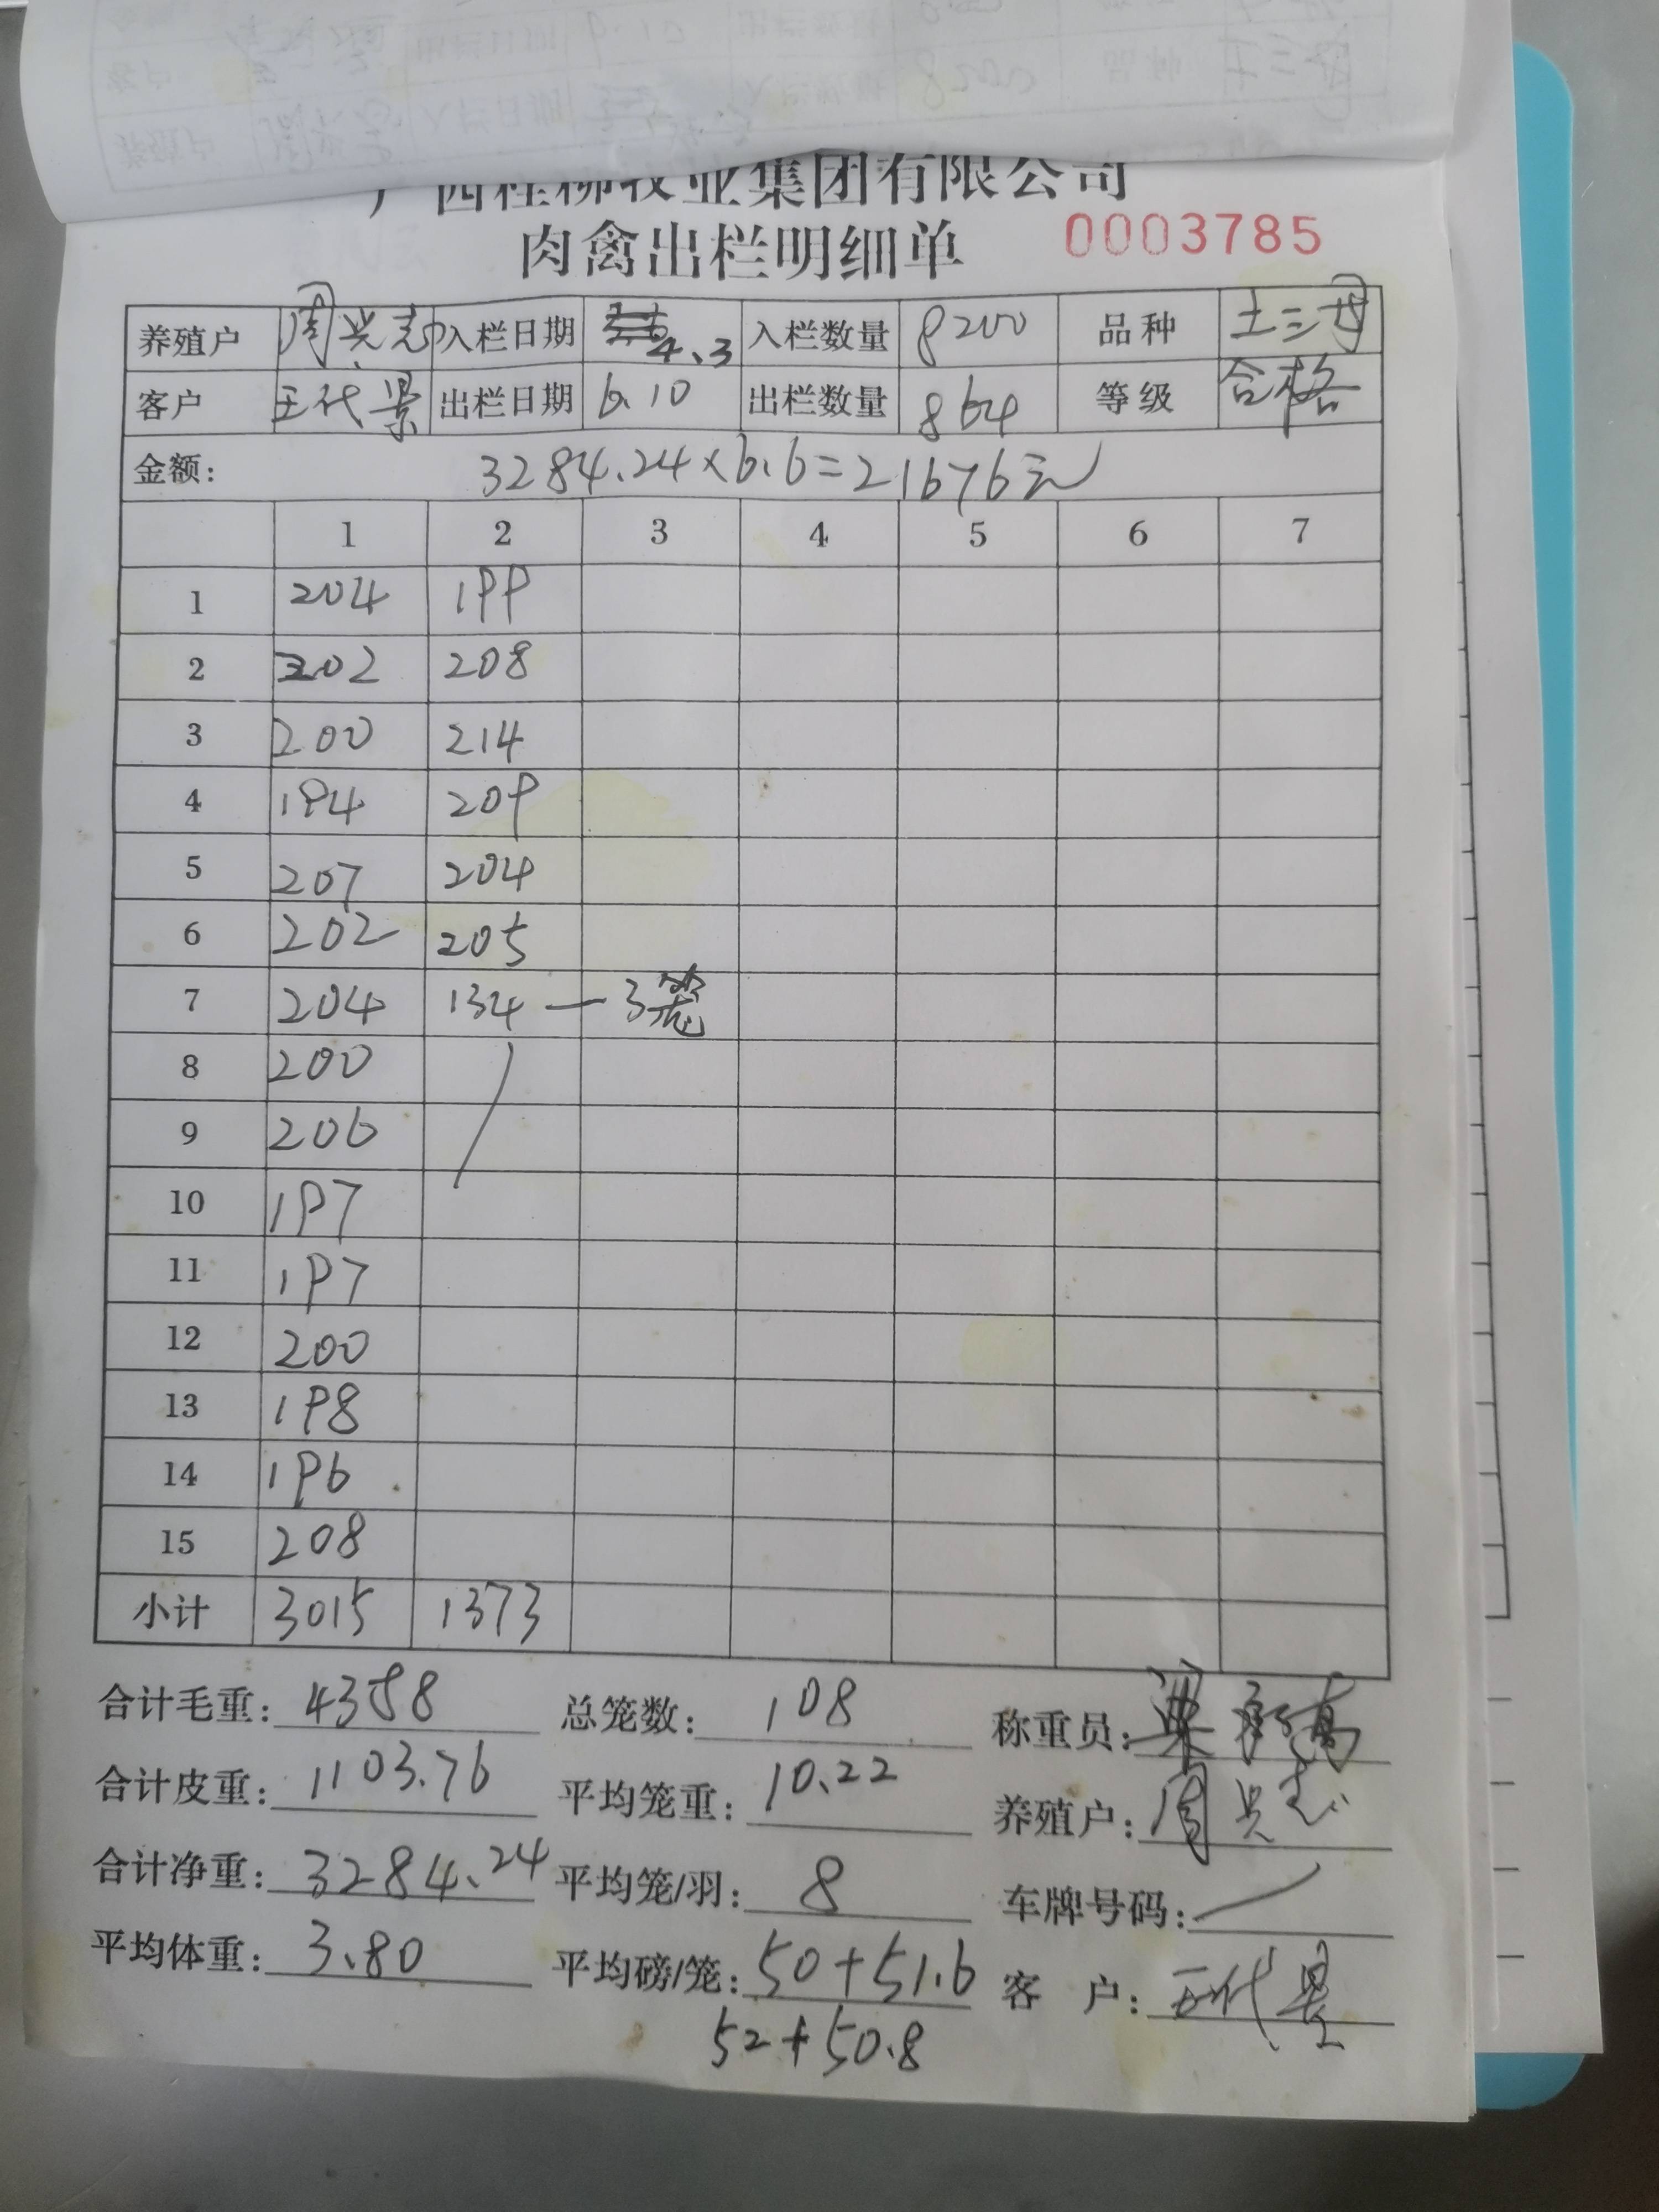 广西桂柳牧业集团有限公司
肉禽出栏明细单 0003785
养殖户 周兴志 入栏日期 4.3 入栏数量 8200 品种 土三母
客户 王代景 出栏日期 6.10 出栏数量 864 等级 合格
金额: 3284.24×6.6=21676元
1 2 3 4 5 6 7
1 204 199
2 202 208
3 200 214
4 194 209
5 207 204
6 202 205
7 204 134 — 3笼
8 200
9 206
10 197
11 197
12 200
13 198
14 196
15 208
小计 3015 1373
合计毛重: 4388 总笼数: 108 称重员:
合计皮重: 1103.76 平均笼重: 10.22 养殖户: 周兴志
合计净重: 3284.24 平均笼/羽: 8 车牌号码:
平均体重: 3.80 平均磅/笼: 50+51.6 客 户: 王代景
52+50.8